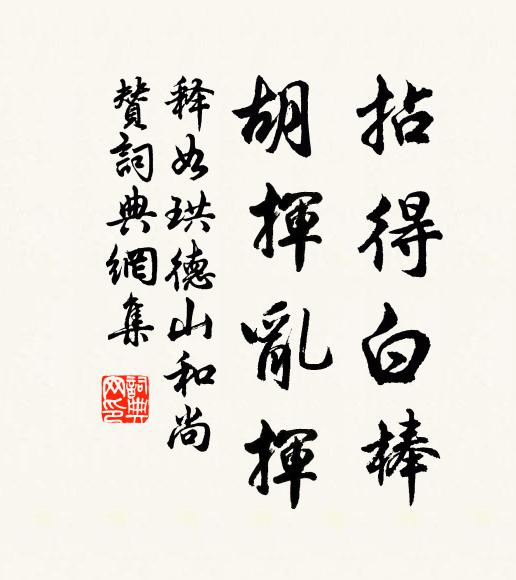 拈得白棒
胡揮亂揮
释如珙德山和尚
賛詞典網集
詞典
网印